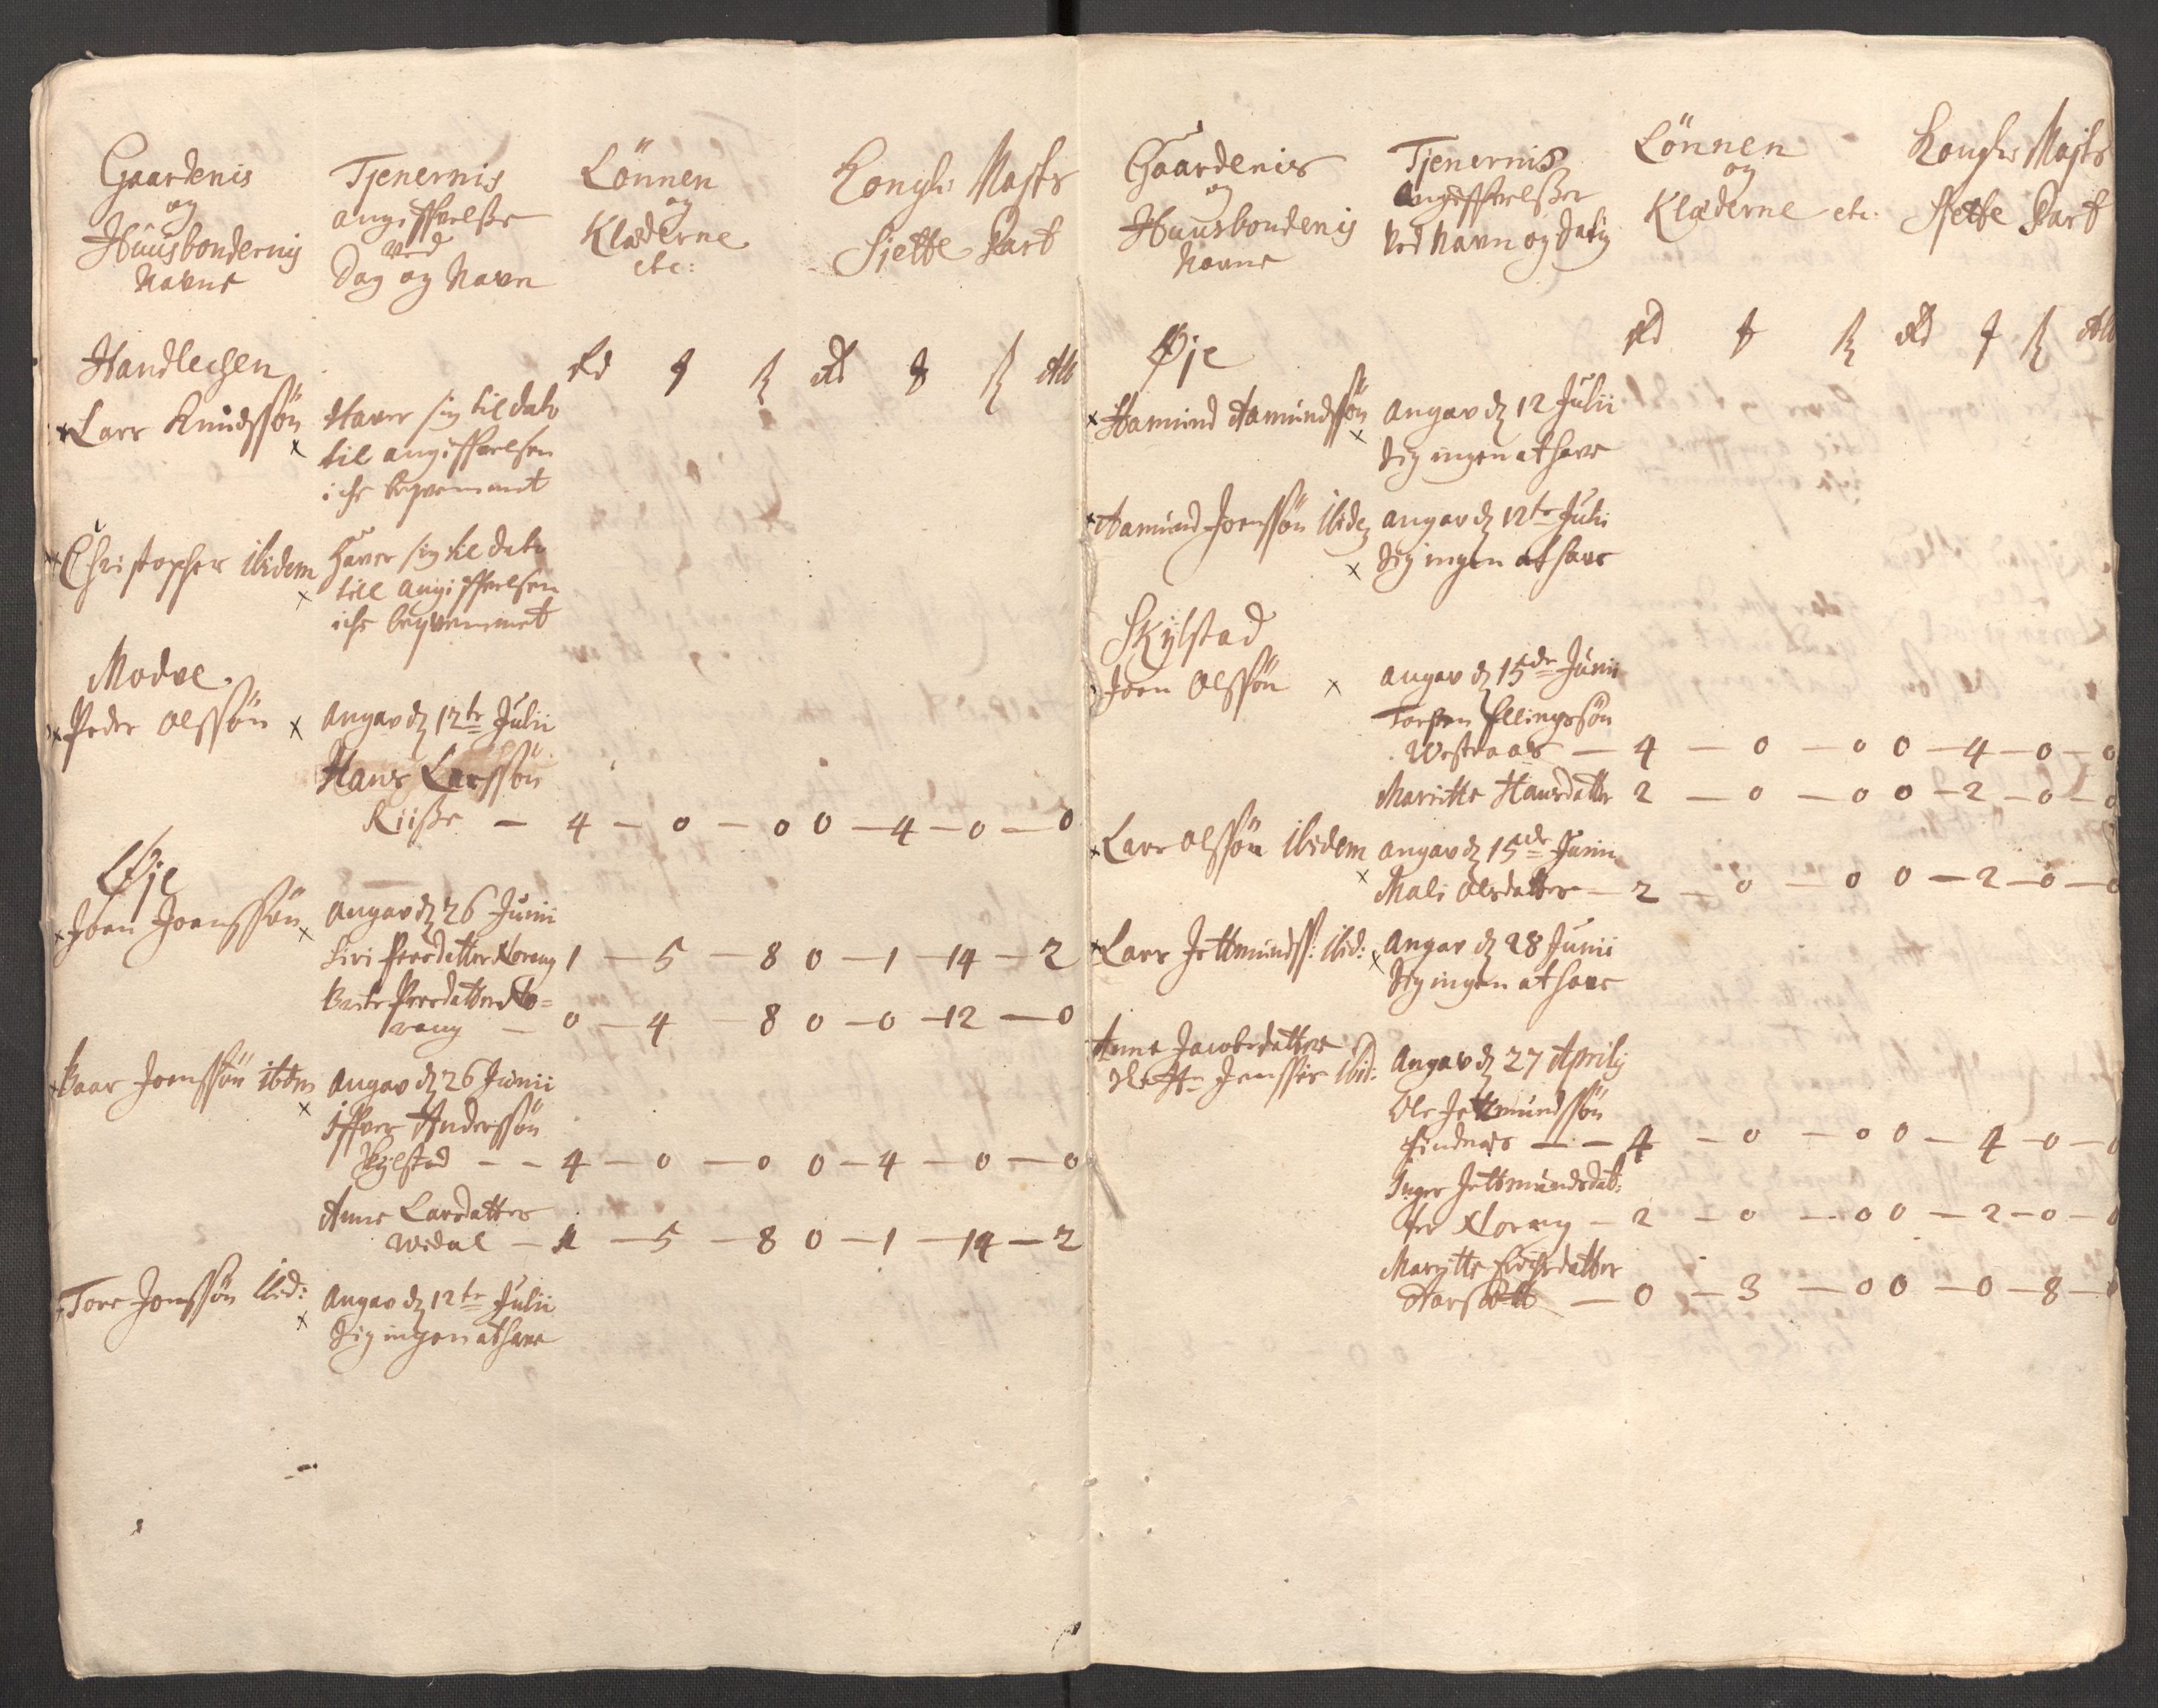 Gaardenis
og
Huusbondernis
Navne
Tjenernis
angiffvelse
ved
Dag og Navn
Lönnen
og
Klæderne
etc:
Kongls Majsts
Siette Part
Handlechen
Rd
Alb
Lars Knudssön
Haver sig til dato
til angiffvelsen
iche beqvemmet
Christopher ibidem
haver sig til dato
till angiffvelsen
iche beqvemmet
Modve
Peder Olssön x
Angav d 12te Julii
Hans Larssön
Riisze — 4 — 0 — 0 0 — 4 — 0 — 0
Øje
Joen Joenssön
angav d 26 Junii
Siri Persdatter Norang 1 — 5 — 8 0 — 1 — 14 — 2
Persdatter No=
rang — 0 — 4 — 8 0 — 0 — 12 — 0
Baar Joenssön ibdm
angav d 26 Junii
x
Iffver Anderssön
Skylstad — — 4 — 0 — 0 0 — 4 — 0 — 0
Anne Larsdatter
— 1 — 5 — 8 0 — 1 — 14 — 2
Tore Jonssön ibid:
Angav d 12te Julii
x
Sig ingen at have
Gaardenis
og
Huusbondenis
Navne
Tjenernis
Angiffvelsze
Ved Navn og Datis
Lönnen
og
Klæderne etc:
Kongls Majsts
Siette Part
Øje
Rd
Alb
Hamund Aamundssön
angav d 12 Julii
x
Sig ingen at have
Aamund Joenssön ibide
angav d 12te Juli
x
Sig ingen at have
Skylstad
Joen Olssön x
angav d 15de Junii
Torsten Ellingssön
— 4 — 0 — 0 0 — 4 — 0 — 0
Maritte Hansdatter 2 — 0 — 0 0 — 2 — 0 — 0
Lars Olssön ibidem
angav d 15de Junii
x
Mali Olsdatter — 2 — 0 — 0 0 — 2 — 0 — 0
Lars Jettmundss: ibid:
angav d 28 Junii
x
Sig ingen at have
Anne Jacobsdatter
ibid:
Angav d 27 Aprilj
Ole Jettmundssön
Findnes — — 4 — 0 — 0 0 — 4 — 0 — 0
Inger Jettmundsdat=
ter Norang — 2 — 0 — 0 0 — 2 — 0 — 0
Maritte Erichsdatter
— 0 — 3 — 0 0 — 0 — 8 — 0